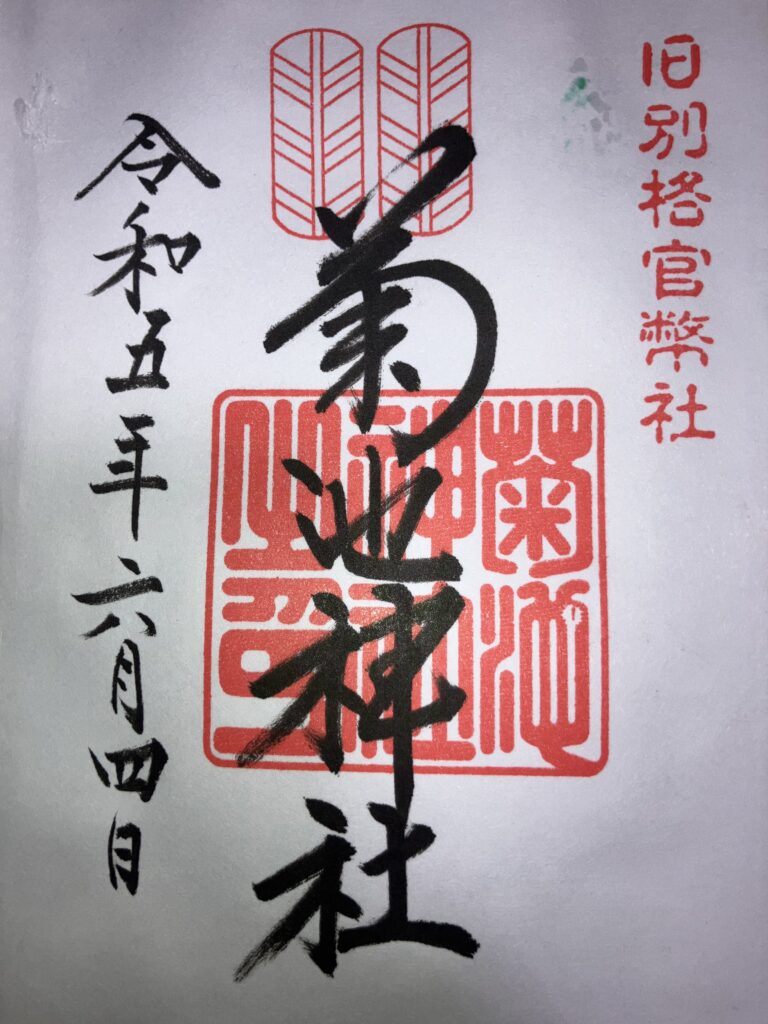 旧別格官幣社
菊池神社
菊池
神社
令和五年六月四日